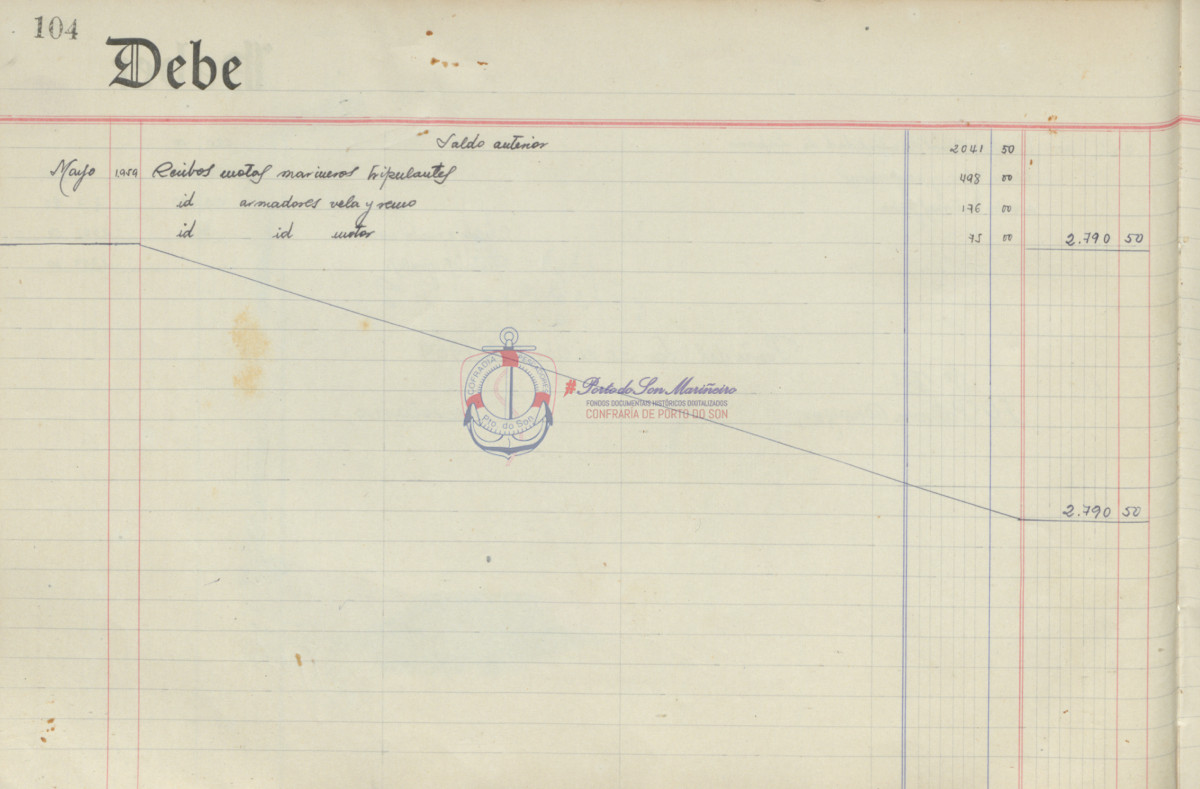 104
Debe
Saldo anterior 2041 50
Mayo 1959 Recibos cuotas marineros tripulantes 498 00
id armadores vela y remo 176 00
id id motor 75 00 2.790 50
COFRADIA PESCADORES
Pto. do Son
#Porto do Son Mariñeiro
FONDOS DOCUMENTAIS HISTÓRICOS DIXITALIZADOS
CONFRARÍA DE PORTO DO SON
2.790 50